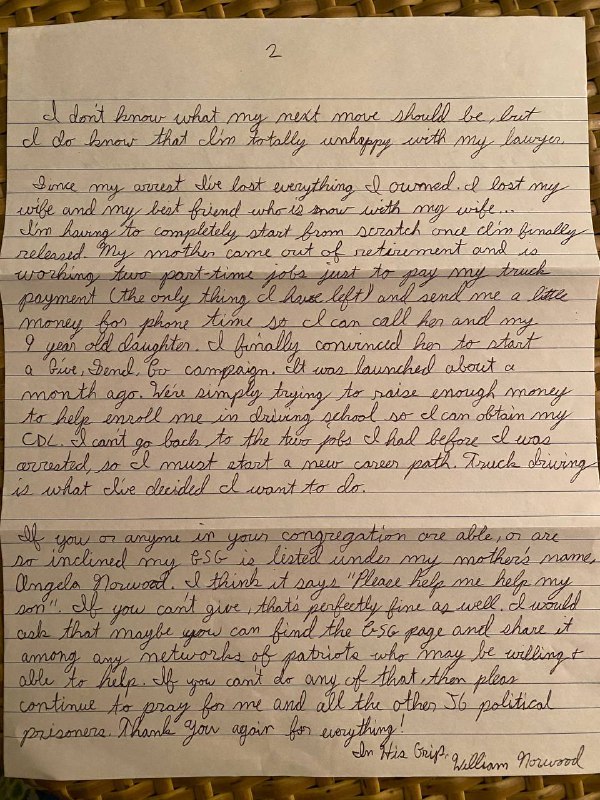 2
I don't know what my next move should be, but
I do know that I'm totally unhappy with my lawyer.
Since my arrest I've lost everything I owned. I lost my
wife and my best friend who is now with my wife...
I'm having to completely start from scratch once I'm finally
released. My mother came out of retirement and is
working two part-time jobs just to pay my truck
payment (the only thing I have left) and send me a little
money for phone time so I can call her and my
9 year old daughter. I finally convinced her to start
a Give, Send, Go campaign. It was launched about a
month ago. We're simply trying to raise enough money
to help enroll me in driving school so I can obtain my
CDL. I can't go back to the two jobs I had before I was
arrested, so I must start a new career path. Truck driving
is what I've decided I want to do.
If you or anyone in your congregation are able, or are
so inclined my GSG is listed under my mother's name,
Angela Norwood. I think it says "Please help me help my
son". If you can't give, that's perfectly fine as well. I would
ask that maybe you can find the GSG page and share it
among any networks of patriots who may be willing +
able to help. If you can't do any of that, then pleas
continue to pray for me and all the other J6 political
prisoners. Thank You again for everything!
In His Grip,
William Norwood